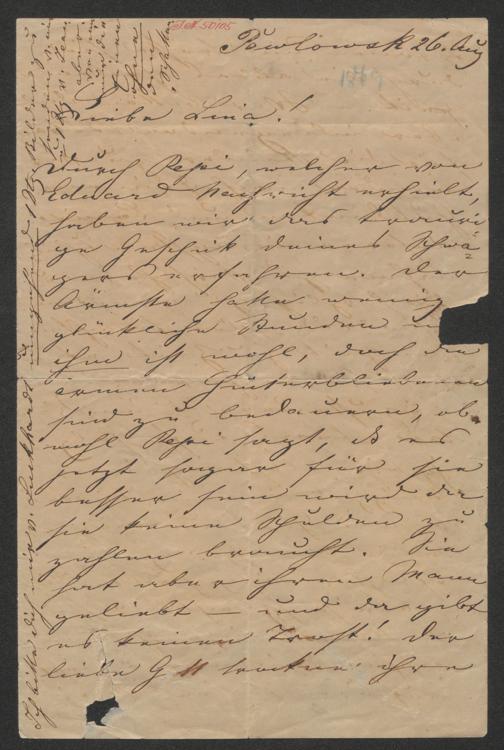 Pawlowsk 26. Aug
1869
Liebe Lina!
Durch Pepi, welcher von
Eduard Nachricht erhielt,
haben wir das trauri-
ge Geschik deines Schwa-
gers erfahren. Der
Ärmste hatte wenig
glückliche Stunden u
ihm ist wohl, doch die
armen Hinterbliebenen
sind zu bedauern, ob-
wohl Pepi sagt, dß es
jetzt sogar für sie
besser sein wird da
sie keine Schulden zu
zahlen braucht. Sie
hat aber ihren Mann
geliebt — und da gibt
es keinen Trost! Der
liebe Gott trockne ihre
Ich bitte dich mir v. Burkhardt umgehend